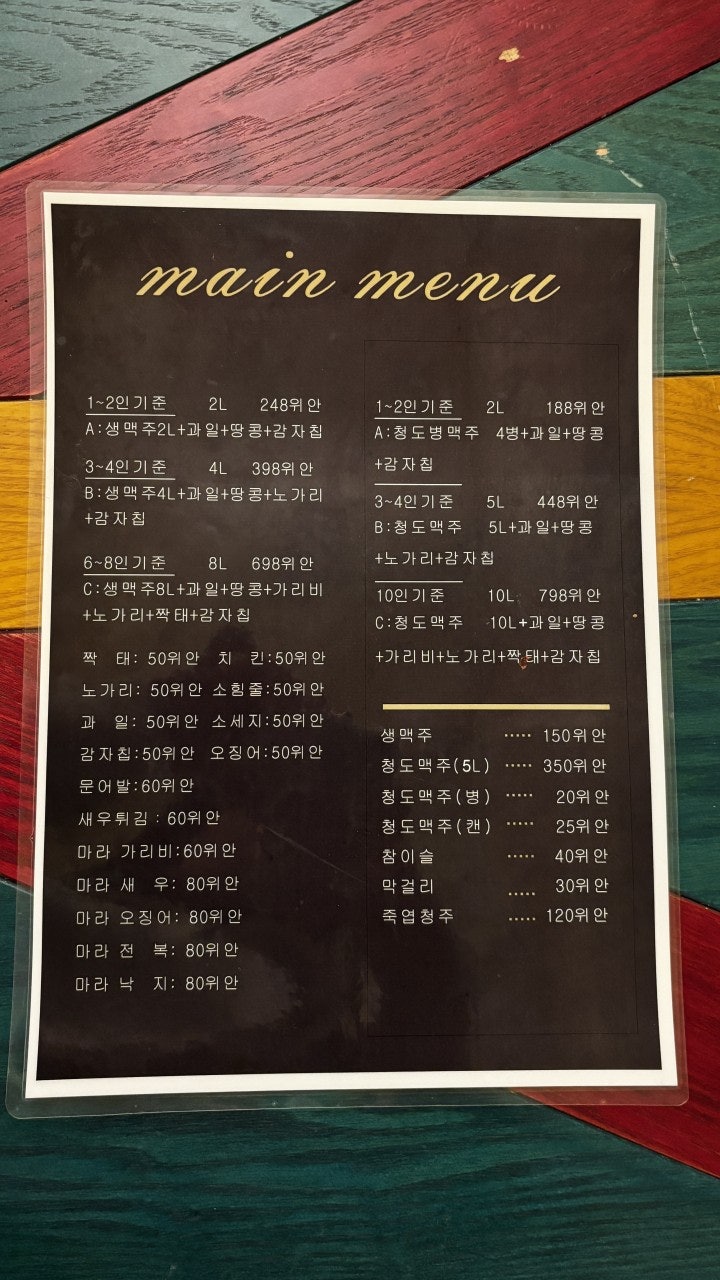 main menu
1~2인기준 2L 248위안
A:생맥주2L+과일+땅콩+감자칩
3~4인기준 4L 398위안
B:생맥주4L+과일+땅콩+노가리
+감자칩
6~8인기준 8L 698위안
C:생맥주8L+과일+땅콩+가리비
+노가리+짝태+감자칩
짝 태: 50위안 치 킨:50위안
노가리: 50위안 소힘줄:50위안
과 일: 50위안 소세지:50위안
감자칩:50위안 오징어:50위안
문어발:60위안
새우튀김: 60위안
마라 가리비:60위안
마라 새 우: 80위안
마라 오징어: 80위안
마라 전 복: 80위안
마라 낙 지: 80위안
1~2인기준 2L 188위안
A:청도병맥주 4병+과일+땅콩
+감자칩
3~4인기준 5L 448위안
B:청도맥주 5L+과일+땅콩
+노가리+감자칩
10인기준 10L 798위안
C:청도맥주 10L+과일+땅콩
+가리비+노가리+짝태+감자칩
생맥주 ····· 150위안
청도맥주(5L) ····· 350위안
청도맥주(병) ····· 20위안
청도맥주(캔) ····· 25위안
참이슬 ····· 40위안
막걸리 ..... 30위안
죽엽청주 ..... 120위안